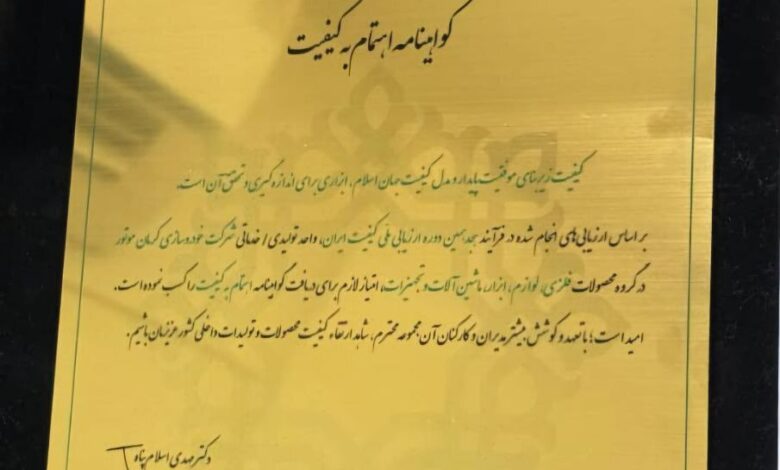 گواهینامه اهتمام به کیفیت
کیفیت زیربنای موفقیت پایدار و مدل کیفیت جهان اسلام، ابزاری برای اندازه‌گیری و تحقق آن است.
بر اساس ارزیابی‌های انجام شده در فرآیند هجدهمین دوره ارزیابی ملی کیفیت ایران، واحد تولیدی / خدماتی شرکت خودروسازی کرمان موتور
در گروه محصولات فلزی، لوازم، ابزار، ماشین‌آلات و تجهیزات، امتیاز لازم برای دریافت گواهینامه اهتمام به کیفیت را کسب نموده است.
امید است؛ با تعهد و کوشش بیشتر مدیران و کارکنان آن مجموعه محترم، شاهد ارتقاء کیفیت محصولات و تولیدات داخلی کشور عزیزمان باشیم.
دکتر مهدی اسلام‌پناه